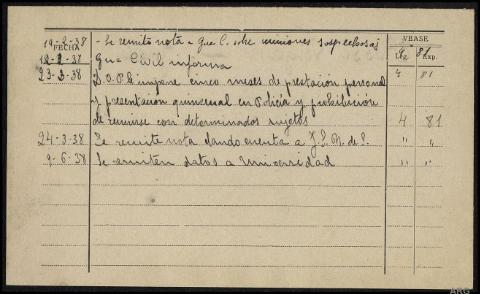 14-2-38 - Se remitió nota a Gua C. sobre reuniones sospechosas
FECHA VEASE
Leg. Exp.
18-2-38 Gua Civil informa 9 81
23-3-38 D.O.P. impone cinco meses de prestación personal " 81
y presentación quincenal en Policía y prohibición
de reunirse con determinados sujetos 4 81
24-3-38 Se remite nota dando cuenta a " "
9-6-38 Se remiten datos a Universidad " "
ARG